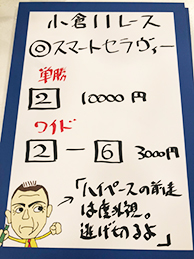 小倉11レース
◎スマートセラヴィー
単勝
2 10000円
ワイド
2-6 3000円
「ハイペースの前走
は度外視。
逃げ切るよ」